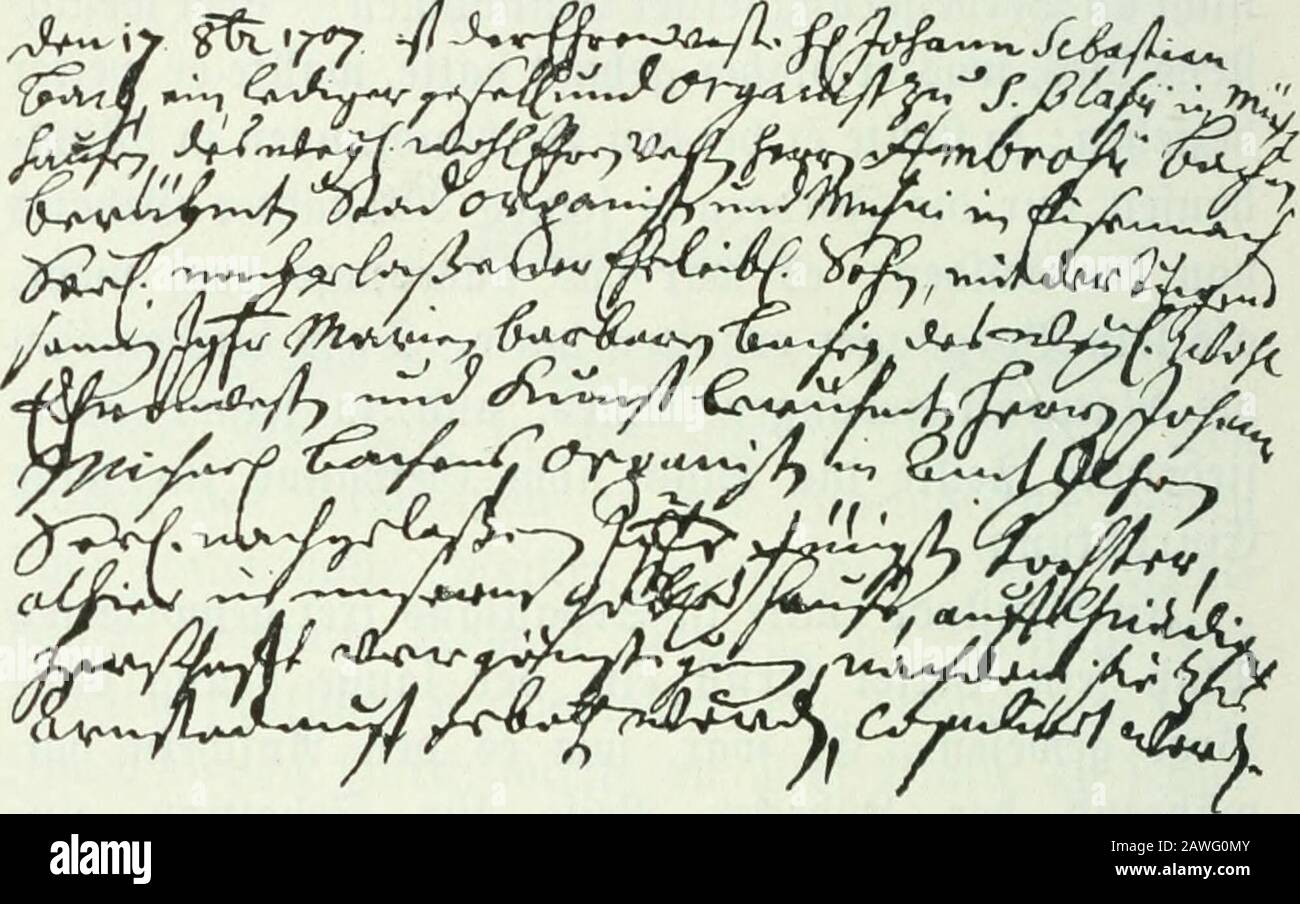 den 17. 8br 1707. ist der Ehrenveste Hl Johann Sebastian
Bach, ein lediger gesell und Organist zu S. Blasii in Mühl
hausen, des weyl. wohl Ehren Vesten Herrn Ambrosii Bachen
berühmten Stad organisten und Musici in Eisenach
Seel. nachgelaßener Eheleibl. Sohn, mit der Tugend
samen Jgfr Marien Barbaren Bachin, des weyl. Wohl
Ehrenvesten und Kunst berühmten Herrn Johann
Michael Bachens, Organisten in Amt Gehren
Seel. nachgelaßenen jüngsten Tochter,
alhier in unserm Gottes hause, auff Gnädiger
Herrschafft vergünstigung, nachdem sie zu
Arnstad auff gebothen worden, copuliret worden.
alamy
Image ID: 2AWG0MY
www.alamy.com